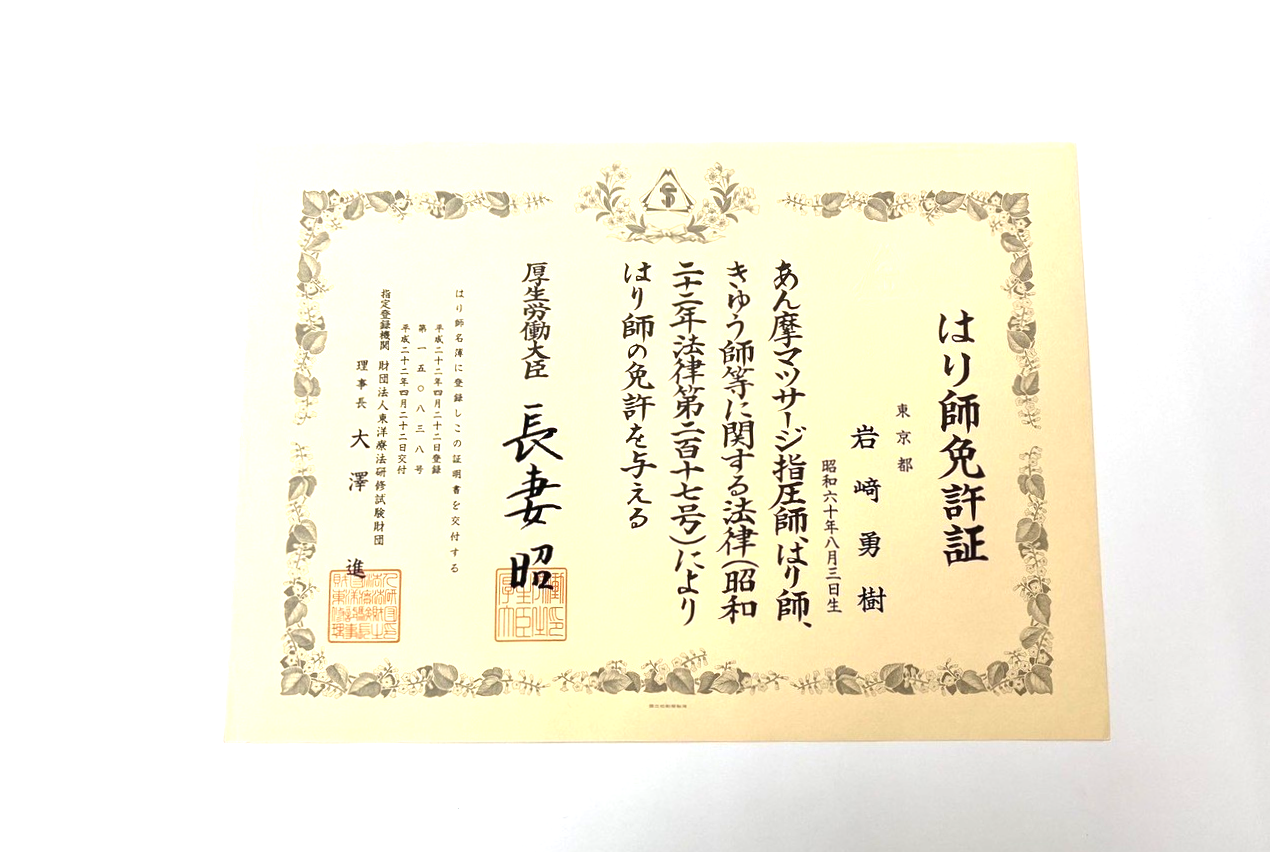 はり師免許証
東京都
岩﨑勇樹
昭和六十年八月三日生
あん摩マツサージ指圧師、はり師、
きゆう師等に関する法律（昭和
二十二年法律第二百十七号）により
はり師の免許を与える
厚生労働大臣 長妻昭
はり師名簿に登録しこの証明書を交付する
平成二十二年四月二十二日登録
第一五〇八三八号
平成二十二年四月二十二日交付
指定登録機関 財団法人東洋療法研修試験財団
理事長 大澤進